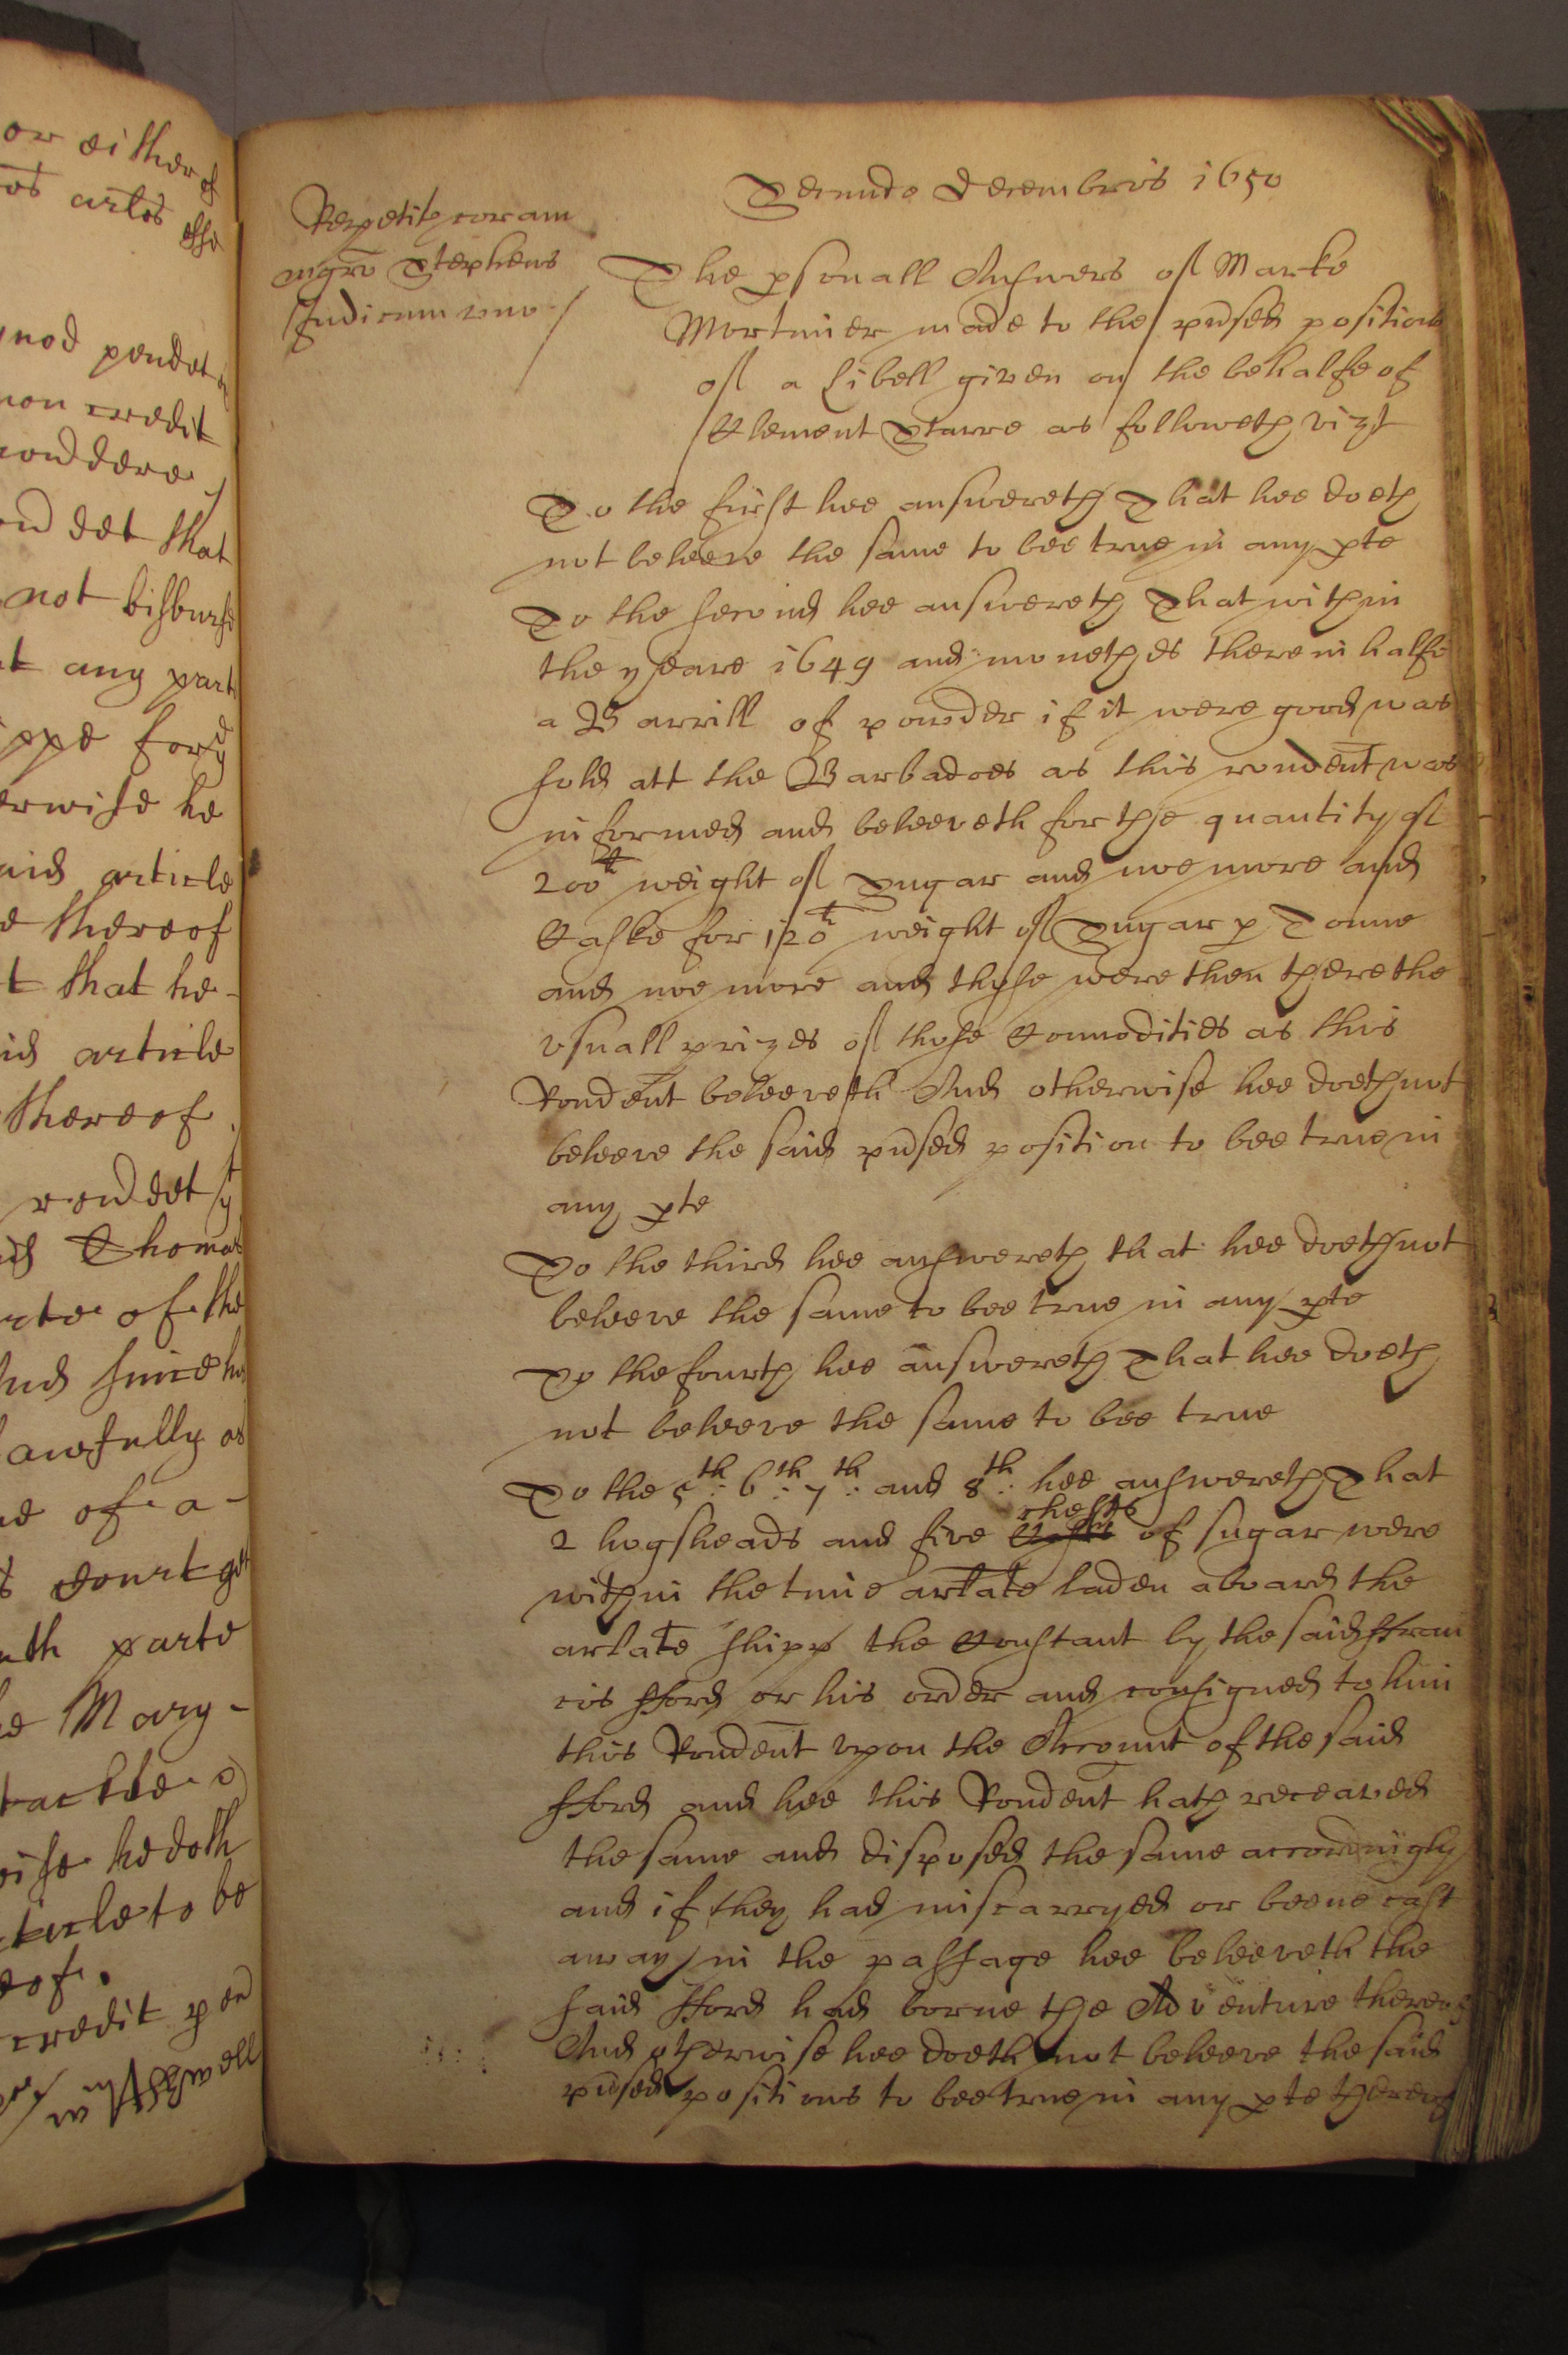 or either of
artos esse
quod pendet
non credit
rondere
det that
not disburse
any part
ppe for
erwise he
aid article
thereof
t that he
id article
thereof
rendet
Thomas
rte of the
And since his
lawfully as
of a
s Court
uth parte
he Mary
tackle
wise he doth
ticle to be
eof.
credit
Secundo Decembris 1650
Repetit coram
mgro Stephens
Judicum uno
The psonall Answers of Marke
Mortimer made to the pnsed positions
of a Libell given on the behalfe of
Clement Starre as followeth vizt
To the first hee answereth That hee doeth
not beleeve the same to bee true in any pte
To the second hee answereth That within
the yeare 1649 and moneths therein halfe
a Barrill of powder if it were good was
sold att the Barbadoes as this rondent was
informed and beleeveth for the quantity of
200th weight of Sugar and noe more and
Caske for 120th weight of Sugar p Tonne
and noe more and those were then there the
usuall prizes of those Commodities as this
Rondent beleeveth And otherwise hee doeth not
beleeve the said pnsed position to bee true in
any pte
To the third hee answereth that hee doeth not
beleeve the same to bee true in any pte
To the fourth hee answereth That hee doeth
not beleeve the same to bee true
To the 5th: 6th: 7th: and 8th: hee answereth That
chests
2 hogsheads and five of sugar were
within the time arlate laden aboard the
arlate shipp the Constant by the said Fran
cis Ford or his order and consigned to him
this Rondent upon the Account of the said
Ford and hee this Rondent hath receaved
the same and disposed the same accordingly
and if they had miscarryed or beene cast
away in the passage hee beleeveth the
said Ford had borne the Adventure thereof
And otherwise hee doeth not beleeve the said
pnsed positions to bee true in any pte thereof